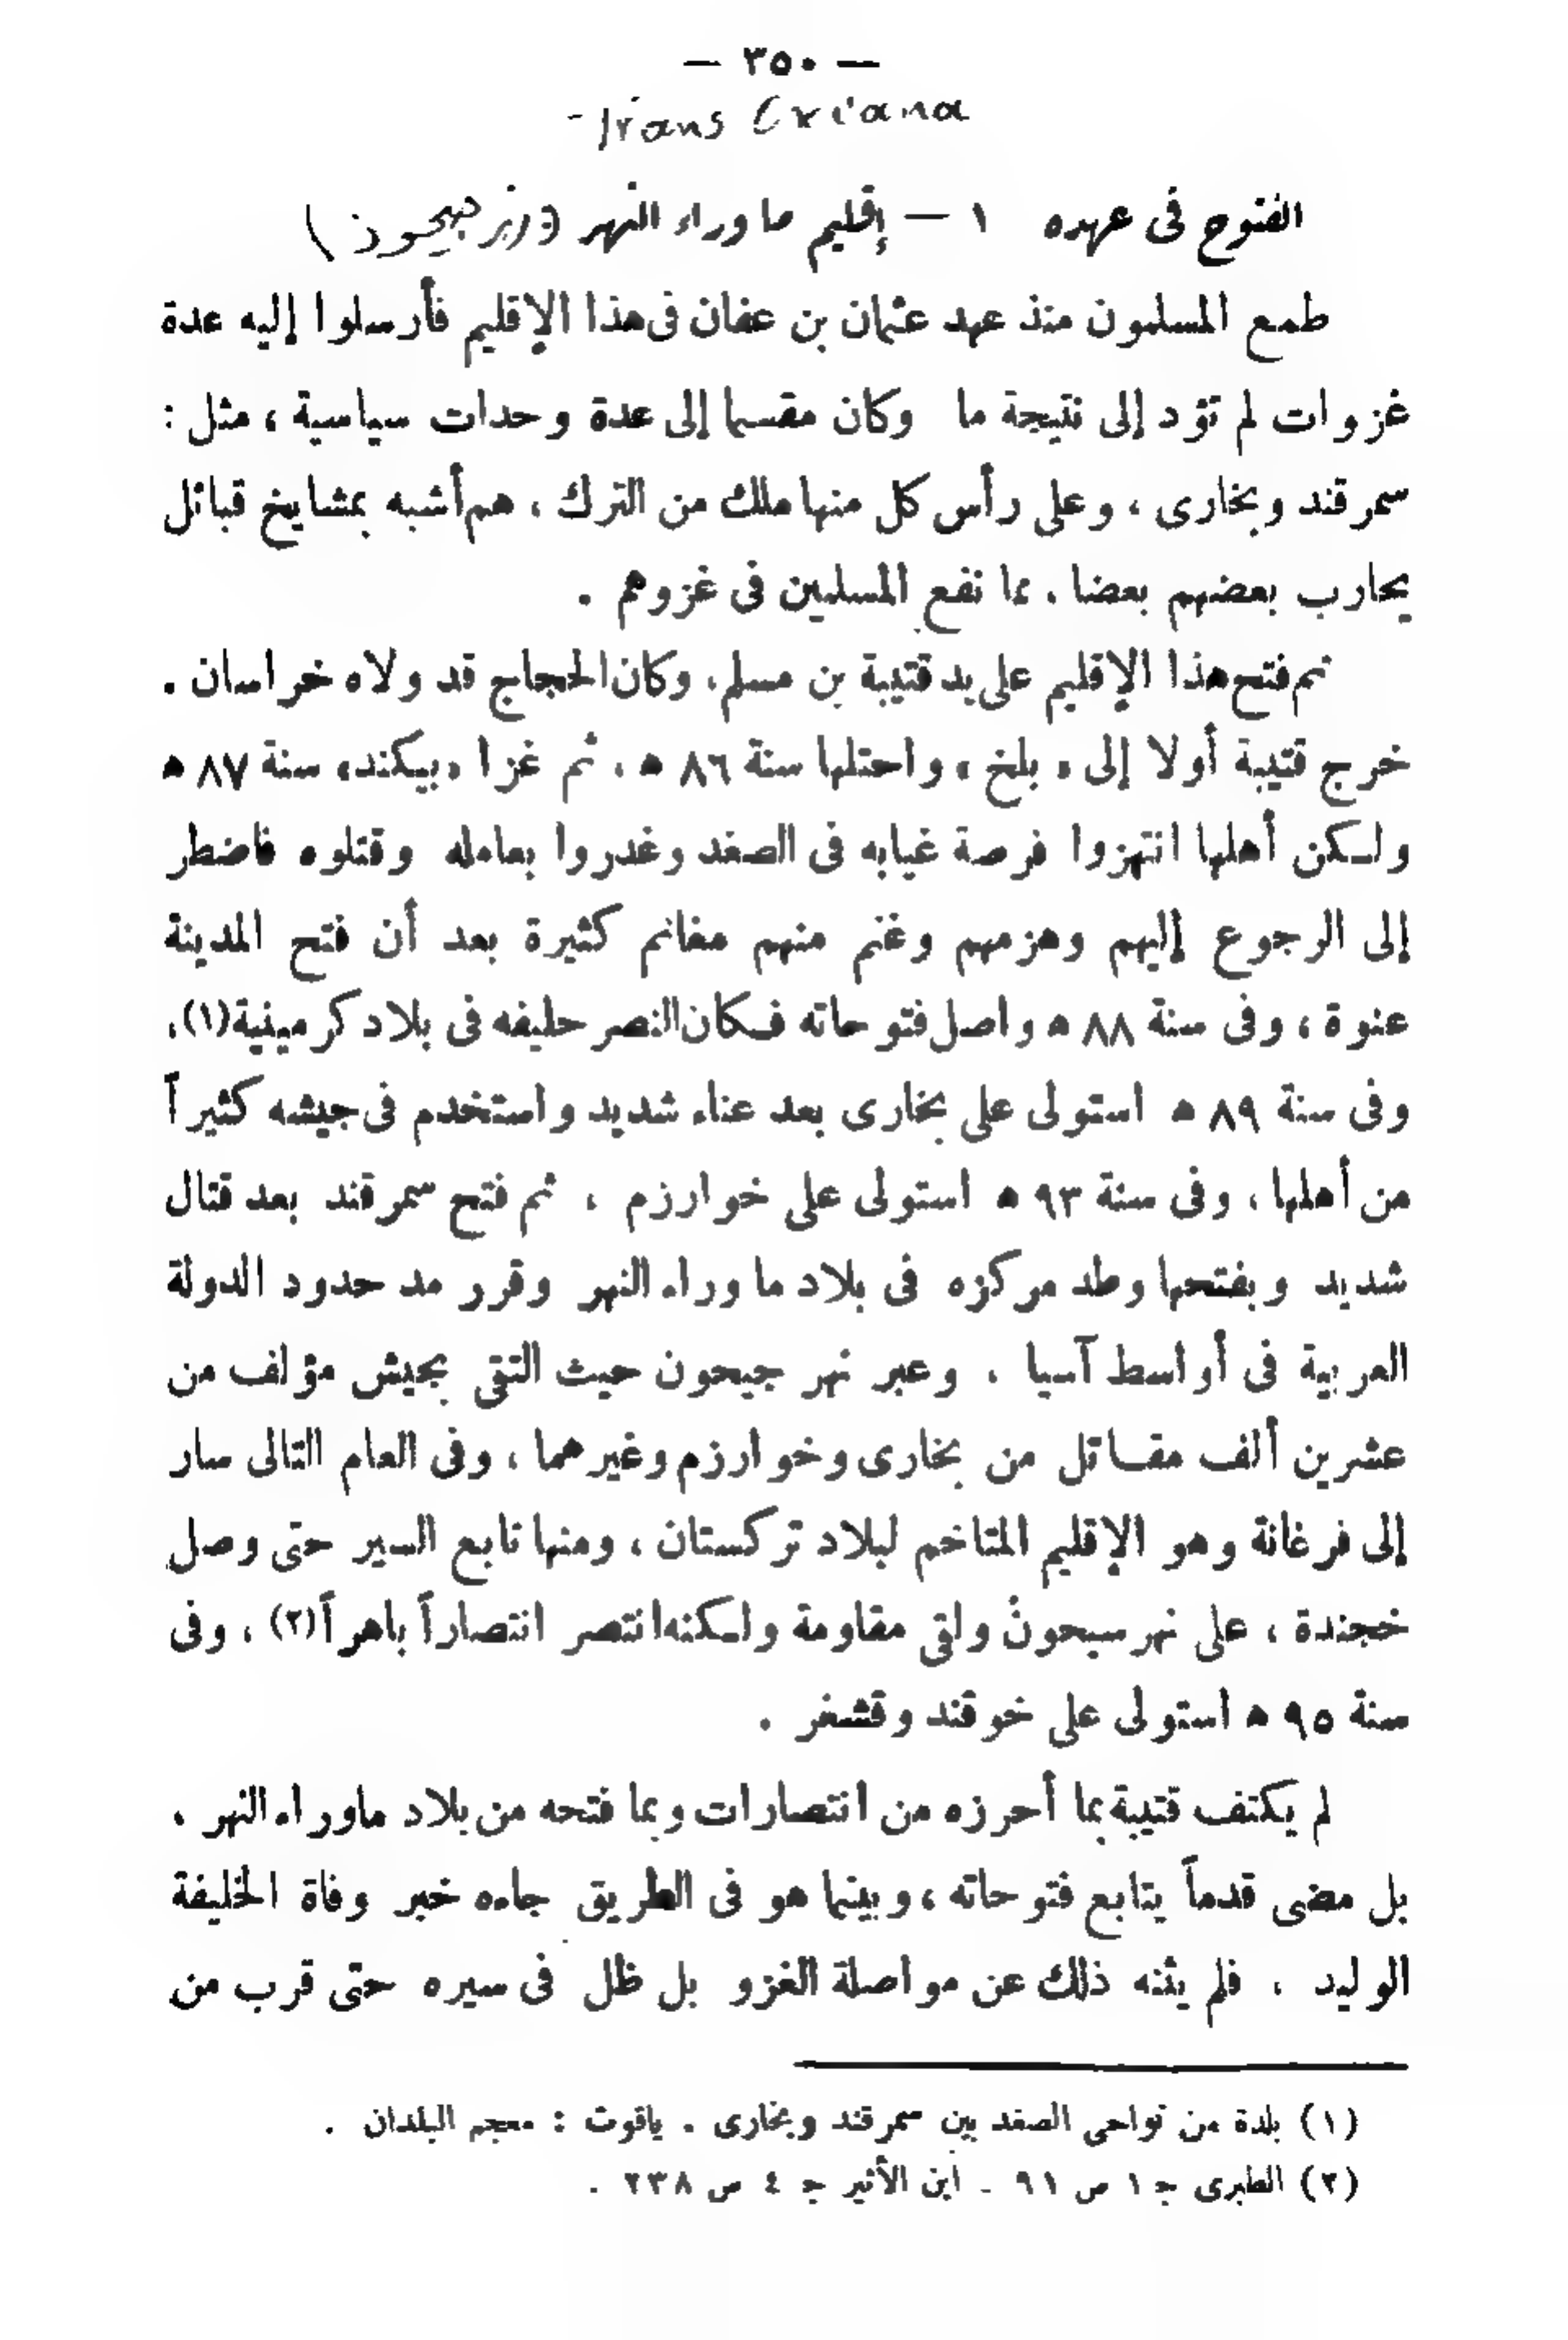 — ٣٥٠ —
Trans Oxiana
الفتوح فى عهده ١ — إقليم ما وراء النهر ( نهر جيحون )
طمع المسلمون منذ عهد عثمان بن عفان فى هذا الإقليم فأرسلوا إليه عدة
غزوات لم تؤد إلى نتيجة ما وكان مقسما إلى عدة وحدات سياسية ، مثل :
سمرقند وبخارى ، وعلى رأس كل منها ملك من الترك ، هم أشبه بمشايخ قبائل
يحارب بعضهم بعضا ، مما نفع المسلمين فى غزوهم .
تم فتح هذا الإقليم على يد قتيبة بن مسلم ، وكان الحجاج قد ولاه خراسان .
خرج قتيبة أولا إلى « بلخ » واحتلها سنة ٨٦ ه ، ثم غزا « بيكند » سنة ٨٧ ه
ولكن أهلها انتهزوا فرصة غيابه فى الصغد وغدروا بعامله وقتلوه فاضطر
إلى الرجوع إليهم وهزمهم وغنم منهم مغانم كثيرة بعد أن فتح المدينة
عنوة ، وفى سنة ٨٨ ه واصل فتوحاته فكان النصر حليفه فى بلاد كرمينية (١) ،
وفى سنة ٨٩ ه استولى على بخارى بعد عناء شديد واستخدم فى جيشه كثيراً
من أهلها ، وفى سنة ٩٣ ه استولى على خوارزم ، ثم فتح سمرقند بعد قتال
شديد وبفتحها وطد مركزه فى بلاد ما وراء النهر وقرر مد حدود الدولة
العربية فى أواسط آسيا . وعبر نهر جيحون حيث التقى بجيش مؤلف من
عشرين ألف مقاتل من بخارى وخوارزم وغيرهما ، وفى العام التالى سار
إلى فرغانة وهو الإقليم المتاخم لبلاد تركستان ، ومنها تابع السير حتى وصل
خجندة ، على نهر سيحون ولقى مقاومة ولكنه انتصر انتصاراً باهراً (٢) ، وفى
سنة ٩٥ ه استولى على خوقند وقشغر .
لم يكتف قتيبة بما أحرزه من انتصارات وبما فتحه من بلاد ماوراء النهر ،
بل مضى قدماً يتابع فتوحاته ، وبينما هو فى الطريق جاءه خبر وفاة الخليفة
الوليد ، فلم يثنه ذلك عن مواصلة الغزو بل ظل فى سيره حتى قرب من
(١) بلدة من نواحى الصغد بين سمرقند وبخارى . ياقوت : معجم البلدان .
(٢) الطبرى ج ١ ص ٩١ . ابن الأثير ج ٤ ص ٢٣٨ .